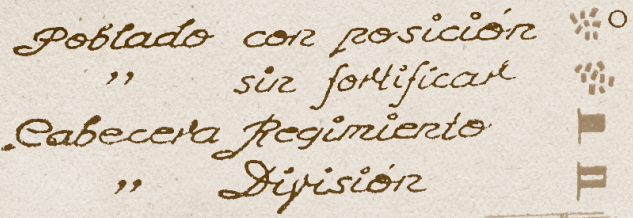 Poblado con posición
" sin fortificar
Cabecera Regimiento
" División